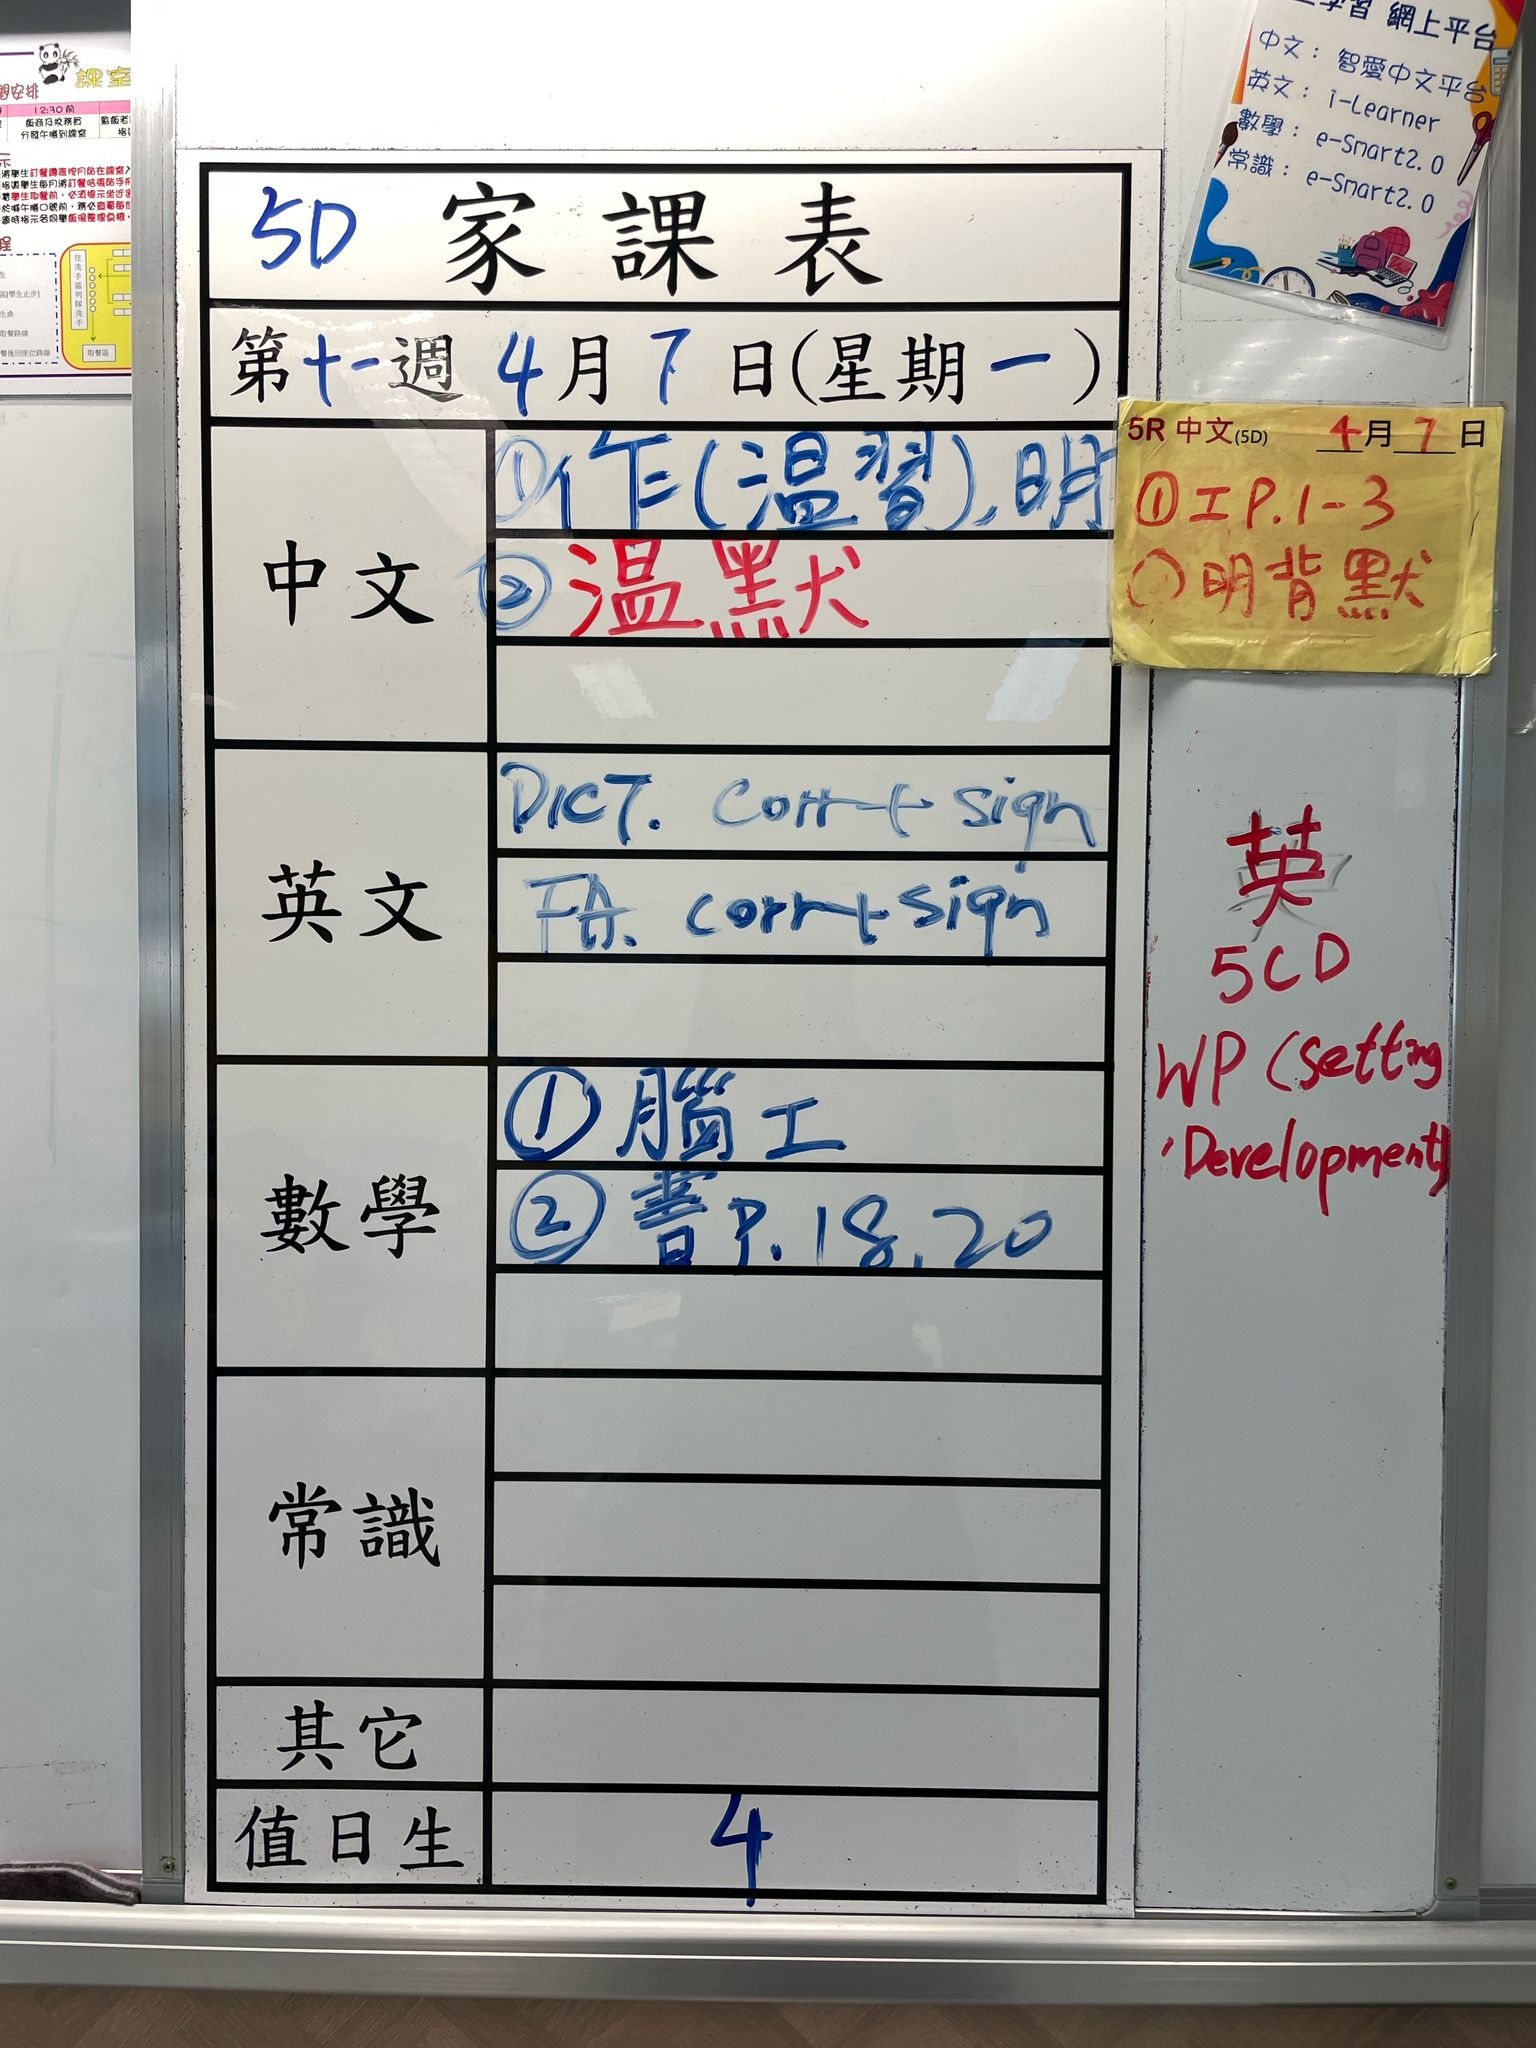 課室
12:30 前
飯商及校務員
分發午膳到課室
學習 網上平台
中文：智愛中文平台
英文：i-Learner
數學：e-Smart2.0
常識：e-Smart2.0
5D 家課表
第十一週 4月7日(星期一)
中文
①作(溫習)、明
②溫默
5R 中文(5D) 4月7日
①工P.1-3
明背默
英文
DICT. corr+sign
FA. corr+sign
英
5CD
WP (setting
Development)
數學
①腦工
②書P.18,20
常識
其它
值日生
4
往洗手區列隊洗手
取餐區